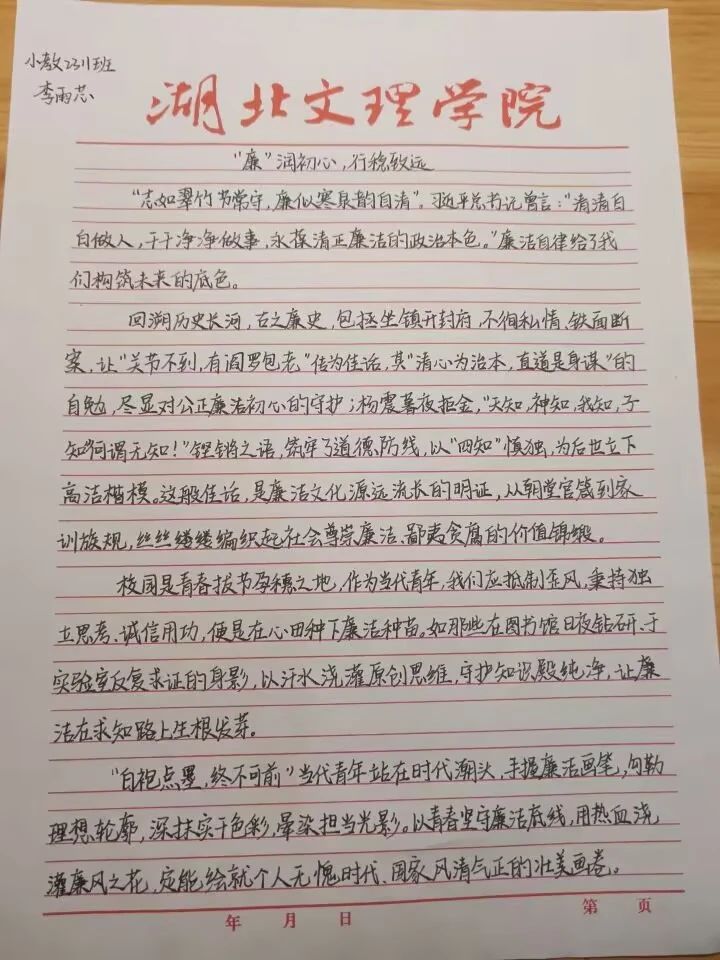 小教2311班
李雨芯
湖北文理学院
"廉"润初心，行稳致远
"志如翠竹节常守，廉似寒泉韵自清"。习近平总书记曾言："清清白
白做人，干干净净做事，永葆清正廉洁的政治本色。"廉洁自律给了我
们构筑未来的底色。
回溯历史长河，古之廉史，包拯坐镇开封府，不徇私情、铁面断
案，让"关节不到，有阎罗包老"传为佳话，其"清心为治本，直道是身谋"的
自勉，尽显对公正廉洁初心的守护；杨震暮夜拒金，"天知，神知，我知，子
知，何谓无知！"铿锵之语，筑牢了道德防线，以"四知"慎独，为后世立下
高洁楷模。这般佳话，是廉洁文化源远流长的明证，从朝堂官箴到家
训族规，丝丝缕缕编织起社会尊崇廉洁、鄙夷贪腐的价值锦缎。
校园是青春拔节孕穗之地，作为当代青年，我们应抵制歪风，秉持独
立思考、诚信用功，便是在心田种下廉洁种苗。如那些在图书馆日夜钻研、于
实验室反复求证的身影，以汗水浇灌原创思维，守护知识殿纯净，让廉
洁在求知路上生根发芽。
"白袍点墨，终不可前"当代青年站在时代潮头，手握廉洁画笔，勾勒
理想轮廓，深抹实干色彩，晕染担当光影。以青春坚守廉洁底线，用热血浇
灌廉风之花，定能绘就个人无愧时代、国家风清气正的壮美画卷。
年 月 日
第 页